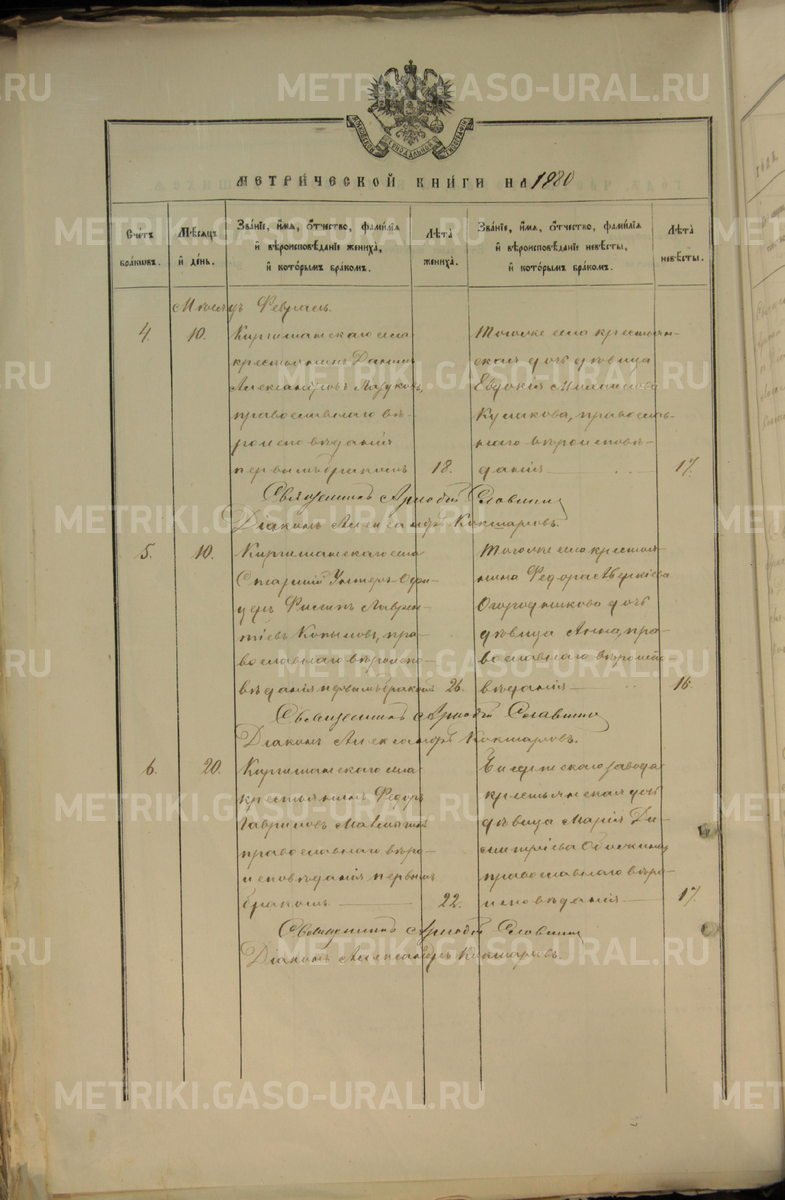 МОСКОВСКОЙ СѴНОДАЛЬНОЙ ТИПОГРАФІИ
МЕТРИ́ЧЕСКОЙ КНИ́ГИ НА 1880
Счетъ бра́ковъ.
Мѣ́сяцъ и҆ де́нь.
Зва́нїе, и҆́мѧ, ѻ҆́тчество, фами́лїѧ и҆ вѣроисповѣ́данїе жениха̀, и҆ кото́рымъ бра́комъ.
Лѣ́та жениха̀.
Зва́нїе, и҆́мѧ, ѻ҆́тчество, фами́лїѧ и҆ вѣроисповѣ́данїе невѣ́сты, и҆ кото́рымъ бра́комъ.
Лѣ́та невѣ́сты.
Мѣсяцъ Февраль.
4.
10.
Киргишанскаго села
крестьянинъ
Александровъ
православнаго вѣ-
роисповѣданія
первымъ бракомъ
18.
Тогоже села крестьян-
ская дочь дѣвица
Евдокія
Куликова, православ-
наго вѣроисповѣ-
данія
17.
Священникъ Аркадій Славнинъ
Діаконъ Александръ Кокшаровъ.
5.
10.
Киргишанскаго села
Старшій Унтеръ-Офи-
церъ Лаврен-
тіевъ Копыловъ, пра-
вославнаго вѣроиспо-
вѣданія первымъ бракомъ
26.
Тогоже села крестья-
нина Федора
Огородникова дочь
дѣвица Анна, пра-
вославнаго вѣроиспо-
вѣданія
16.
Священникъ Аркадій Славнинъ
Діаконъ Александръ Кокшаровъ.
6.
20.
Киргишанскаго села
крестьянинъ Федоръ
Гавриловъ
православнаго вѣро-
исповѣданія первымъ
бракомъ
22.
Бисертскаго завода
крестьянская дочь
дѣвица Марія Ди-
митріева
православнаго вѣро-
исповѣданія
17.
Священникъ Аркадій Славнинъ
Діаконъ Александръ Кокшаровъ.
METRIKI.GASO-URAL.RU